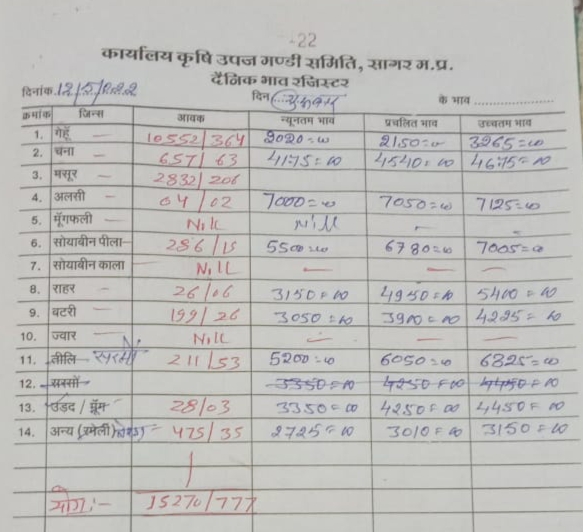 -22
कार्यालय कृषि उपज मण्डी समिति, सागर म.प्र.
दैनिक भाव रजिस्टर
दिनांक 12/5/2022 दिन के भाव
क्रमांक जिन्स आवक न्यूनतम भाव प्रचलित भाव उच्चतम भाव
1. गेहूँ 10552/364 2020=00 2150=00 3265=00
2. चना 657/63 4175=00 4540=00 4675=00
3. मसूर 2832/206
4. अलसी 04/02 7000=00 7050=00 7125=00
5. मूँगफली Nill Nill
6. सोयाबीन पीला 286/15 5500=00 6780=00 7005=00
7. सोयाबीन काला Nill
8. राहर 26/06 3150=00 4950=00 5400=00
9. बटरी 199/26 3050=00 3900=00 4225=00
10. ज्वार Nill
11. तीलि सरसों 211/53 5200=00 6050=00 6825=00
12. सरसों 3350=00 4250=00 4450=00
13. उडद / मूँग 28/03 3350=00 4250=00 4450=00
14. अन्य (रमेली) 475/35 2725=00 3010=00 3150=00
योग:- 15270/777